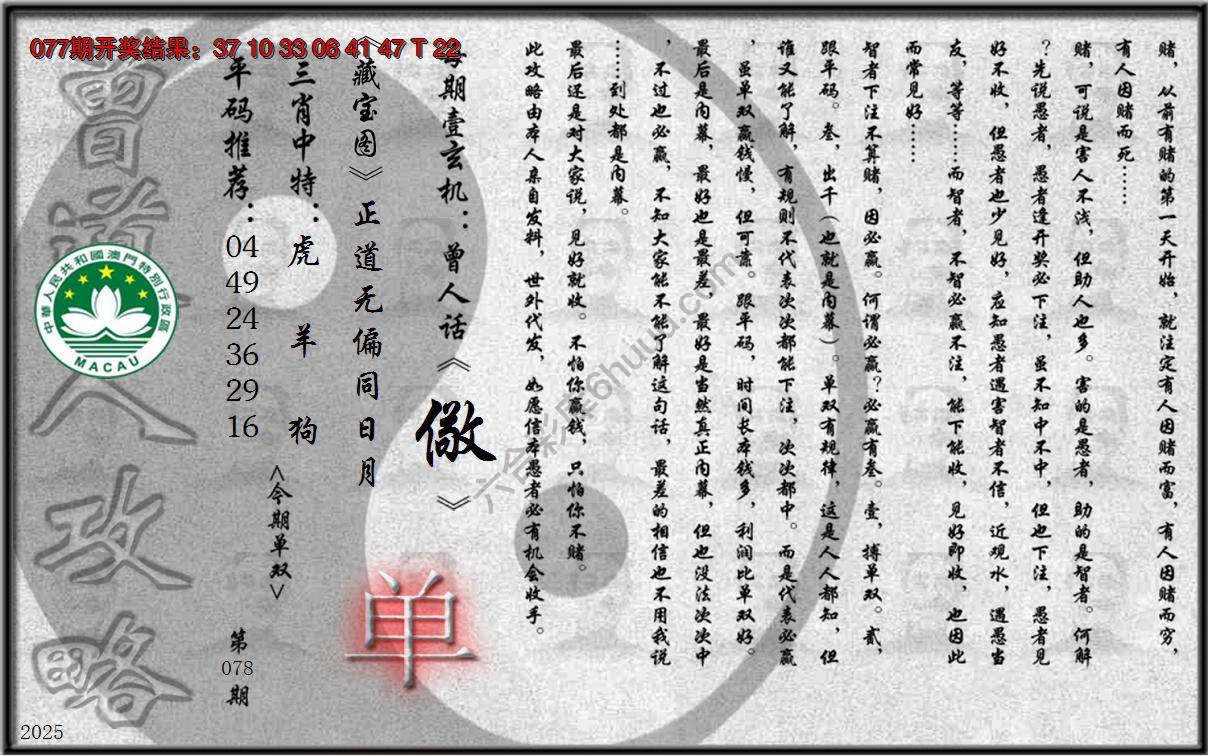 077期开奖结果：37 10 33 06 41 47 T 22
赌，从前有赌的第一天开始，就注定有人因赌而富，有人因赌而穷，
有人因赌而死……
赌，可说是害人不浅，但助人也多。害的是愚者，助的是智者。何解
？先说愚者，愚者逢开奖必下注，虽不知中不中，但也下注，愚者见
好不收，但愚者也少见好，应知愚者遇害智者不信，近观水，遇愚当
友，等等……而智者，不智必赢不注，能下能收，见好即收，也因此
而常见好……
智者下注不算赌，因必赢。何谓必赢？必赢有叁。壹，搏单双。贰，
跟平码。叁，出千（也就是内幕）。单双有规律，这是人人都知，但
谁又能了解，有规则不代表次次都能下注，次次都中。而是代表必赢
，虽单双赢钱慢，但可靠。跟平码，时间长本钱多，利润比单双好。
最后是内幕，最好也是最差，最好是当然真正内幕，但也没法次次中
，不过也必赢，不知大家能不能了解这句话，最差的相信也不用我说
……到处都是内幕。
最后还是对大家说，见好就收。不怕你赢钱，只怕你不赌。
此攻略由本人亲自发料，世外代发，如愿信本愚者必有机会收手。
每期壹玄机：曾人话《儆》
《藏宝图》正道无偏同日月
三肖中特：虎 羊 狗
<今期单双>
单
平码推荐：
04
49
24
36
29
16
第
078
期
曾道人攻略
中華人民共和國澳門特別行政區
MACAU
2025